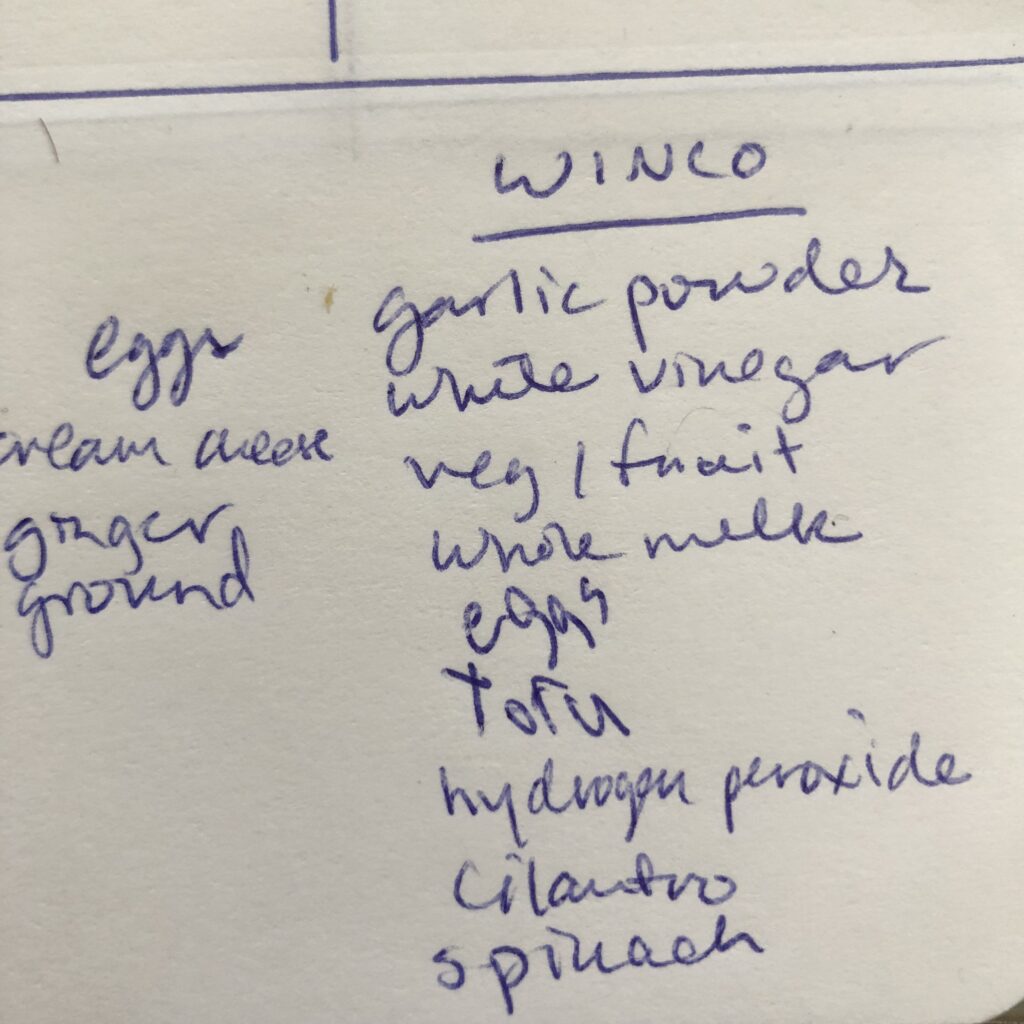 WINCO
garlic powder
white vinegar
veg / fruit
whole milk
eggs
Tofu
hydrogen peroxide
cilantro
spinach
eggs
cream cheese
ginger
ground